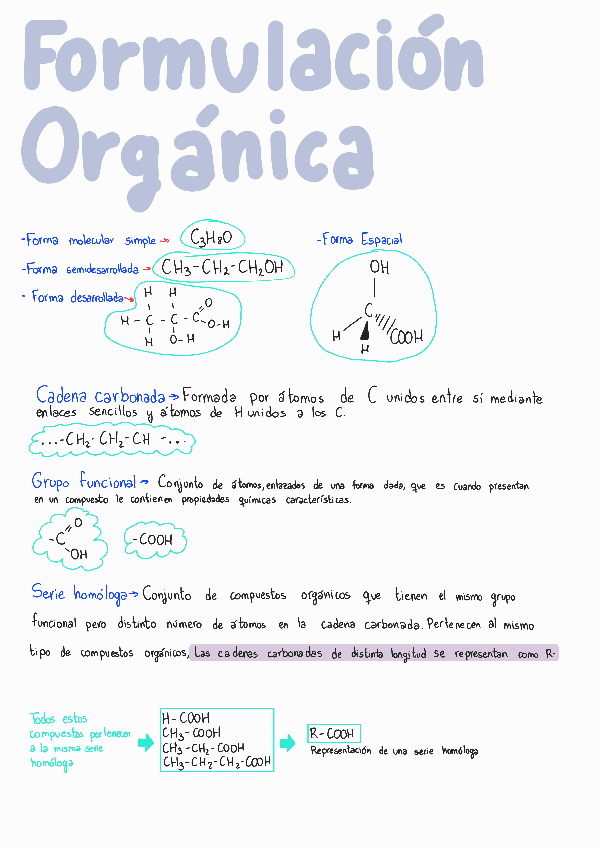 Formulación
Orgánica
-Forma molecular simple→ C3H8O
-Forma Espacial
-Forma semidesarrollada→ CH3-CH2-CH2OH
- Forma desarrollada→
H H
O
H - C - C - C
O-H
H O-H
OH
C
H COOH
H
Cadena carbonada→Formada por átomos de C unidos entre sí mediante
enlaces sencillos y átomos de H unidos a los C.
-...-CH2-CH2-CH -...
Grupo funcional→ Conjunto de átomos, enlazados de una forma dada, que es cuando presentan
en un compuesto le contienen propiedades químicas características.
O
-C
OH
-COOH
Serie homóloga→ Conjunto de compuestos orgánicos que tienen el mismo grupo
funcional pero distinto número de átomos en la cadena carbonada. Pertenecen al mismo
tipo de compuestos orgánicos, Las cadenas carbonadas de distinta longitud se representan como R-
Todos estos
compuestos pertenecen
a la misma serie
homóloga
H-COOH
CH3-COOH
CH3-CH2-COOH
CH3-CH2-CH2-COOH
R-COOH
Representación de una serie homóloga